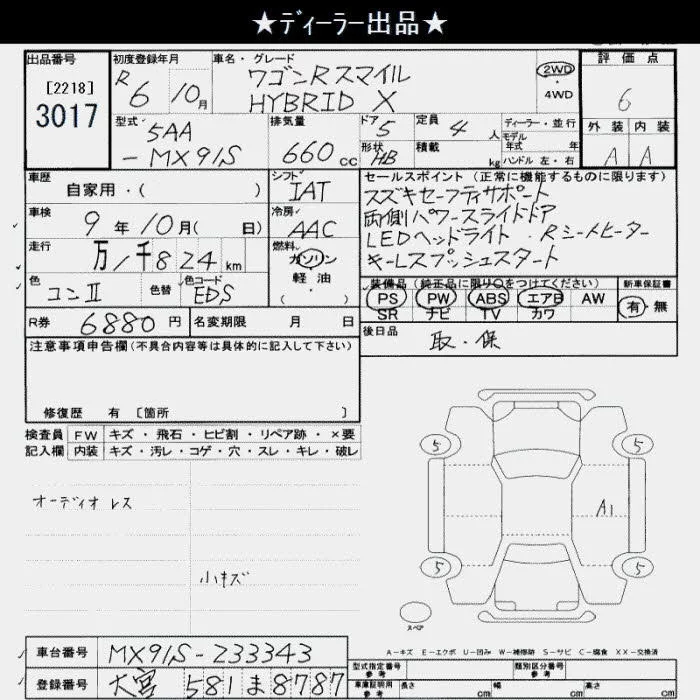 ★ディーラー出品★
出品番号
[2218]
3017
初度登録年月
R6 10月
車名・グレード
ワゴンRスマイル
HYBRID X
2WD
・
4WD
評価点
6
外装 内装
A A
型式
5AA
-MX91S
排気量
660cc
ドア 5
定員 4人
形状 HB
積載 kg
ディーラー・並行
モデル年式 年
ハンドル 左・右
車歴
自家用・( )
シフト
IAT
車検
9年10月( 日)
冷房
AAC
走行
万1千824km
燃料
ガソリン
軽油
・( )
色
コンⅡ
色替
色コード
EDS
R券
6880円
名変期限 月 日
セールスポイント(正常に機能するものに限ります)
スズキセーフティサポート
両側パワースライドドア
LEDヘッドライト・Rシートヒーター
キーレスプッシュスタート
装備品(純正品に限り○をつけてください)
PS PW ABS エアB AW
SR ナビ TV カワ
新車保証書
有・無
後日品
取・保
注意事項申告欄(不具合内容等は具体的に記入して下さい)
修復歴 有 [箇所 ]
検査員 FW キズ・飛石・ヒビ割・リペア跡・×要
記入欄 内装 キズ・汚レ・コゲ・穴・スレ・キレ・破レ
オーディオレス
小キズ
5 5
A1
5 5
スペア
A-キズ E-エクボ U-凹み W-補修跡 S-サビ C-腐食 XX-交換済
車台番号
MX91S-233343
登録番号
大宮 581 ま 8787
型式指定番号
参考
類別区分番号
参考
車庫証明用
参考
長さ cm 幅 cm 高さ cm